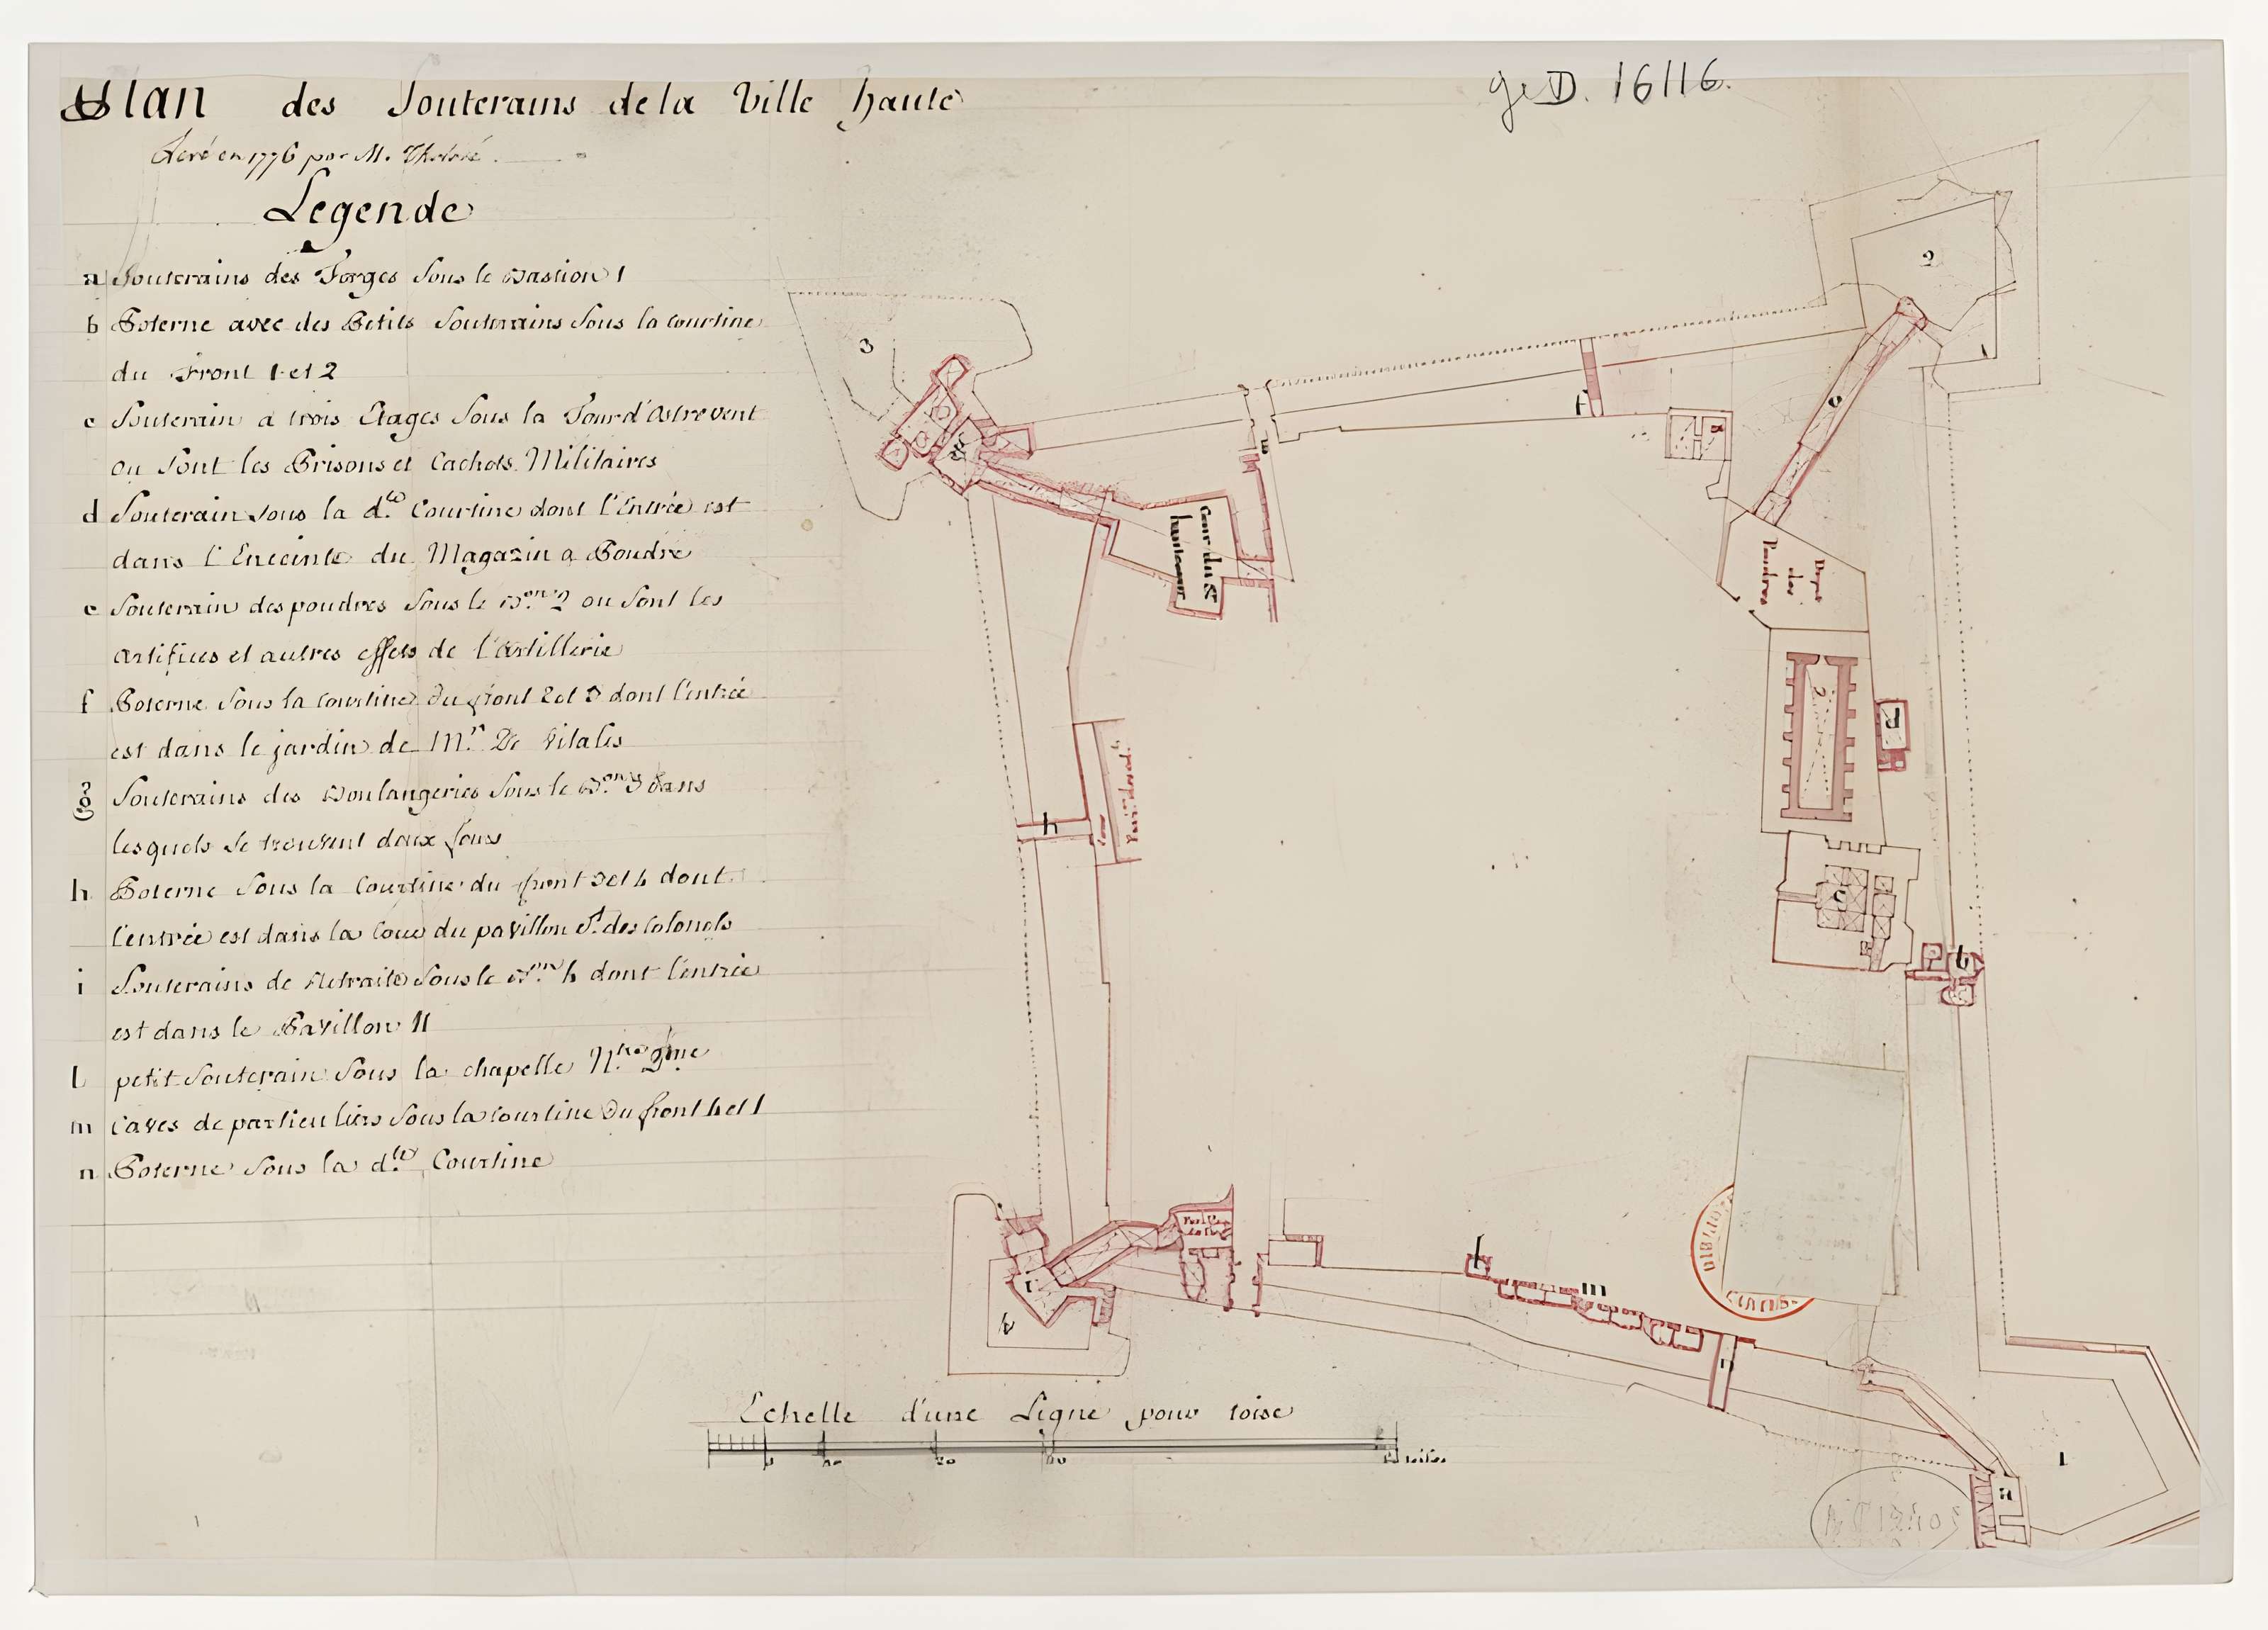 Plan des Souterains de la Ville haute
Levé en 1776 par M.
ge D. 16116.
Legende
a Souterains des Forges Sous le Bastion 1
b Poterne avec des Petits Souterains Sous la Courtine
du Front 1 et 2
c Souterain a trois Etages Sous la Tour d'Ostrevent
ou Sont les Prisons et Cachots Militaires
d Souterain sous la d.te Courtine dont l'Entrée est
dans l'Enceinte du Magazin a Poudre
e Souterain des poudres Sous le B.on 2 ou Sont les
artifices et autres effets de l'artillerie
f Poterne Sous la Courtine du front 2 et 3 dont l'entrée
est dans le jardin de M.r De Vitalis
g Souterains des Boulangeries Sous le B.on 3 dans
lesquels se trouvent deux fours
h Poterne Sous la Courtine du front 3 et 4 dont
l'entrée est dans la Cour du pavillon des Colonels
i Souterains de Retraite Sous le B.on 4 dont l'entrée
est dans le Pavillon 11
l petit Souterain Sous la chapelle N.tre Dme
m Caves de particuliers Sous la courtine Du front 4 et 1
n Poterne Sous la d.te Courtine
2
3
e
f
Cour du
Depot
des
Poudres
d
h
c
b
l
m
n
i
4
1
a
Echelle d'une Ligne pour toise
toises